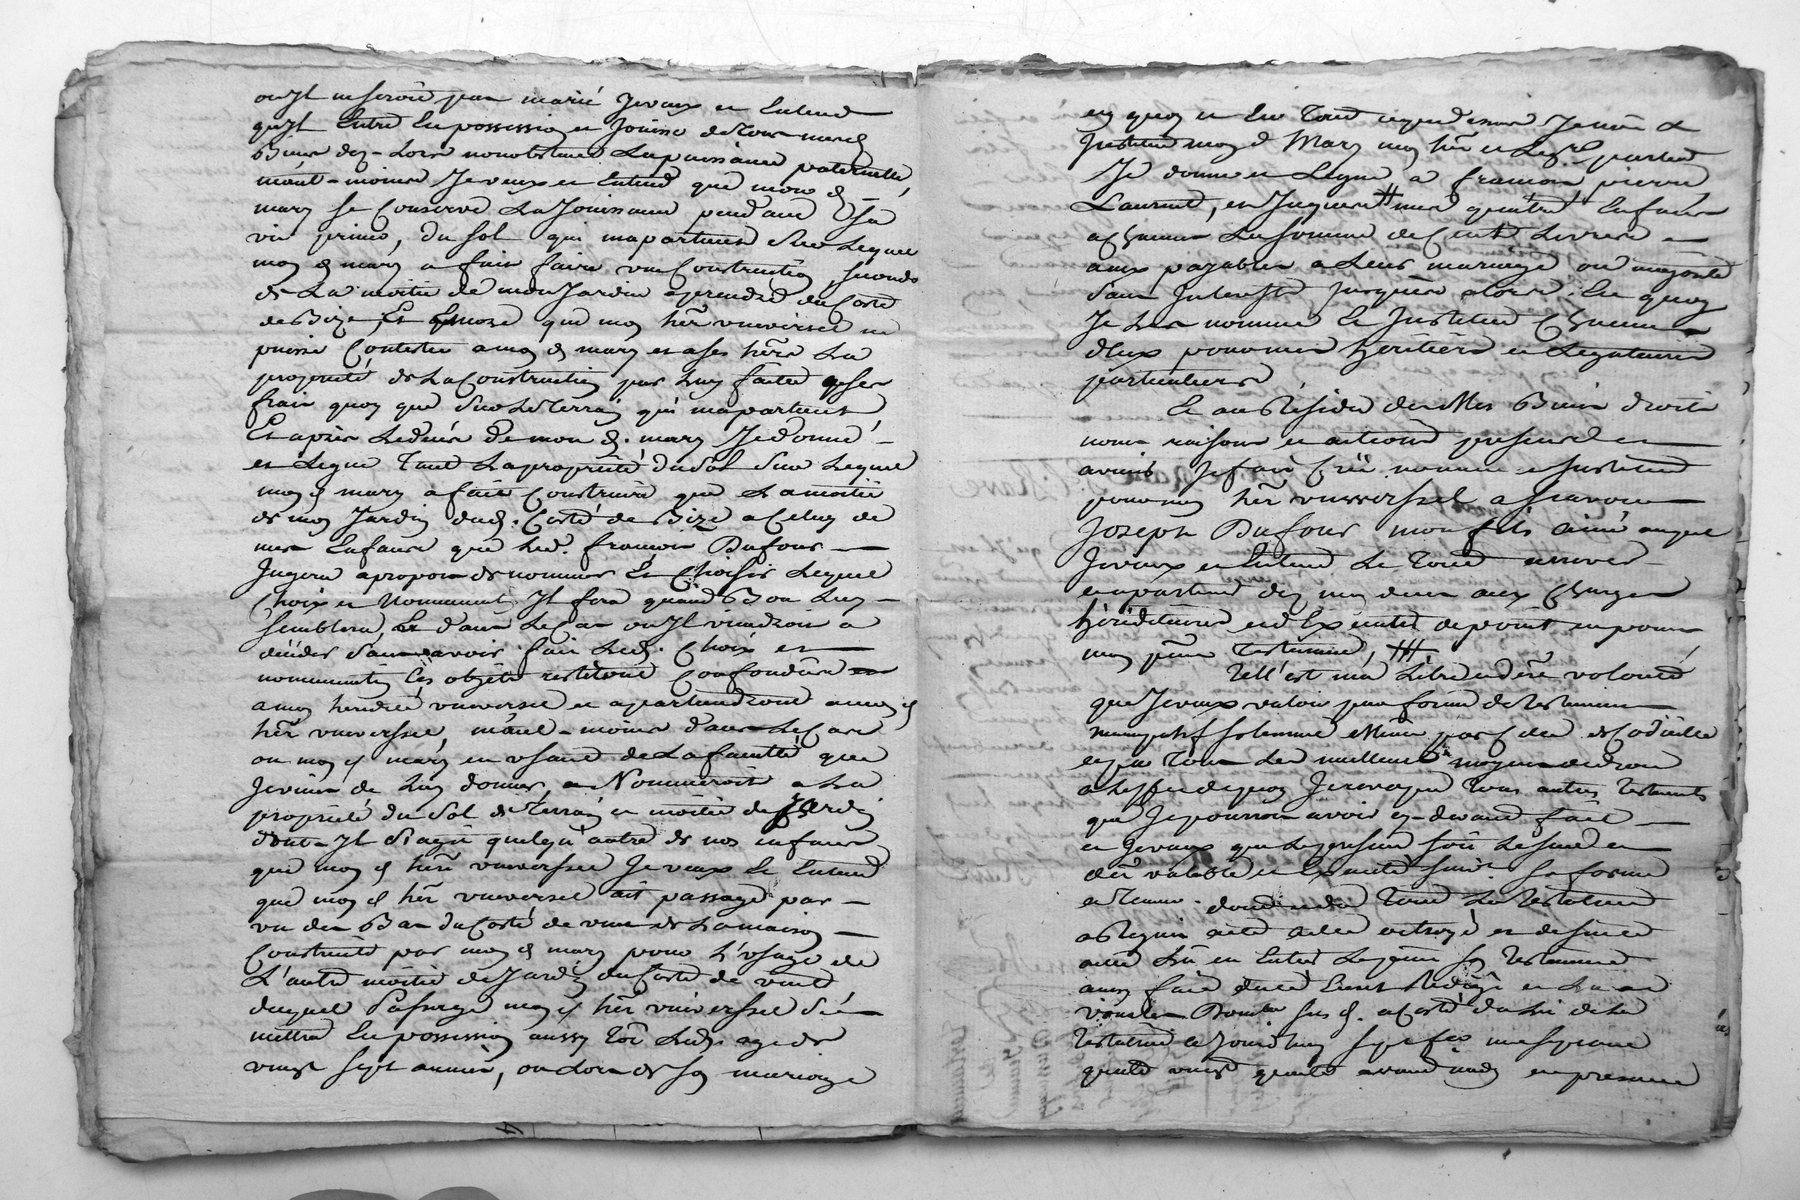 ou Jl ne seroit pas marié Je veux et Entend
qu'Jl Entre En possession et Jouisse de tous mesd
Biens dez-Lors nonobstant La puissance paternelle,
moint-moins Je veux et Entend que mon d
mary se Conserve La Jouissance pendant Sa
vie primo, du sol qui m'apartient Sur Lequel
mon d mary a fait faire une Construction, secondo
de La moitié de mon Jardin a prendre du Costé
de Bize, Et que mon her universel ne
puisse Contester a mon d mary et a ses hers La
propriété de La Construction par Luy faite a ses
frais quoy que Sur Le terrain qui m'apartient
Et après Le decés de mon d. mary Je donne
et Legue tant La propriété du sol Sur Lequel
mon d mary a fait Construire que La moitié
de mon Jardin dud. Costé de Bize a Celuy de
mes Enfants que led. francois Dufour
Jugera a propos de nommer Et Choisir Lequel
Choix et Nomment Jl fera quand Bon Luy
semblera, Et dans Le Cas ou Jl viendroit a
déceder sans avoir fait Led. Choix et
nomination Ces objets resteront Confondus
a mon heredité universel et apartiendront a mon d
her universel, moint-moins dans Le Cas
ou mon d mary en usant de La faculté que
Je viens de Luy donner, Nommeroit a La
propriété du Sol de terrain et moitié de Jardin
dont-Jl S'agit quelqu'autre de nos enfans
que mon d her universel Je veux Et Entend
que mon d her universel ait passage par
un des Bas du Costé de vent de La maison
Construite par mon d mary pour L'usage de
L'autre moitié de Jardin du Costé de vent
duquel passage mon d her universel Se
mettra En possession aussy tot Led. age de
vingt sept années, ou Lors de son mariage
en quoy et En tout ce que dessus Je nomme &
Jnstitue mon d Mary mon her et Legre particul
Je donne et Legue a francois, pierre
Laurent, et Jaques # mes quatre Enfans
a Chacun La somme de Cent Livres
aux payables a Leur mariage ou majorité
sans Jnterests jusques alors. En quoy
Je Les nomme Et Jnstitue Chacun
d'Eux pour mes heritiers et Legataires
particuliers
Et au Résidu de Mes Biens droits
noms raisons et actions presents et
avenir Je fais Crée nomme et Jnstitue
pour mon her universel a scavoir
Joseph Dufour mon fils ainé auquel
Je veux et Entend Le tout arriver
et apartenir dez mon decés aux Charges
héréditaires et d'Executer de point en point
mon pnt Testament, ###
Tell'est ma Libre et dere volonté
que Je veux valoir par forme de testament
nuncupatif solemne et même par Celle de Codicille
et par tous Les meilleurs moyens de droit
a L'effet de quoy Je revoque tous autres testaments
que Je pourrois avoir cy-devant fait
et Je veux que Le present soit Le seul et
der valable et Executé suivt. Sa forme
et teneur. dont et du tout La testatrice
a Requis acte a elle octroyé et de suite
aiant Lû en Entier Le present son testament
ainsi fait dicté Ecrit Redigé et Lu au
village Bonila susd. a Costé du Lit de La
testatrice ce Jourd'huy sept fev mil sept cent
quatre vingt quatre avant midy en presence